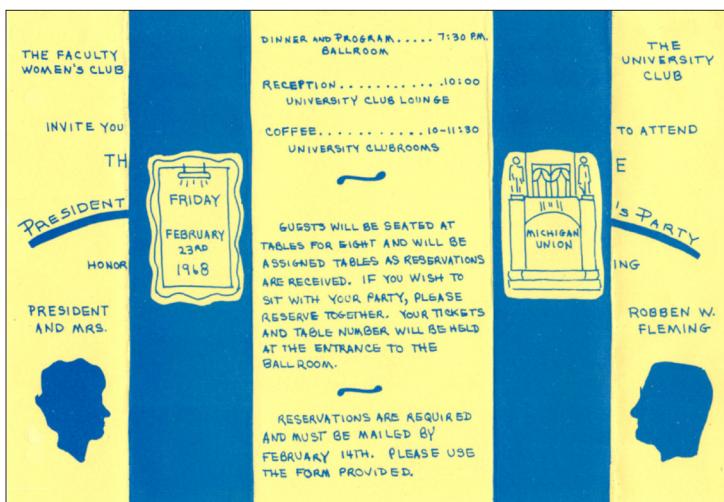 THE FACULTY
WOMEN'S CLUB
INVITE YOU
TH
PRESIDENT
HONOR
PRESIDENT
AND MRS.
FRIDAY
FEBRUARY
23RD
1968
DINNER AND PROGRAM..... 7:30 P.M.
BALLROOM
RECEPTION............10:00
UNIVERSITY CLUB LOUNGE
COFFEE...........10-11:30
UNIVERSITY CLUBROOMS
GUESTS WILL BE SEATED AT
TABLES FOR EIGHT AND WILL BE
ASSIGNED TABLES AS RESERVATIONS
ARE RECEIVED. IF YOU WISH TO
SIT WITH YOUR PARTY, PLEASE
RESERVE TOGETHER. YOUR TICKETS
AND TABLE NUMBER WILL BE HELD
AT THE ENTRANCE TO THE
BALLROOM.
RESERVATIONS ARE REQUIRED
AND MUST BE MAILED BY
FEBRUARY 14TH. PLEASE USE
THE FORM PROVIDED.
MICHIGAN
UNION
THE
UNIVERSITY
CLUB
TO ATTEND
E
'S PARTY
ING
ROBBEN W.
FLEMING